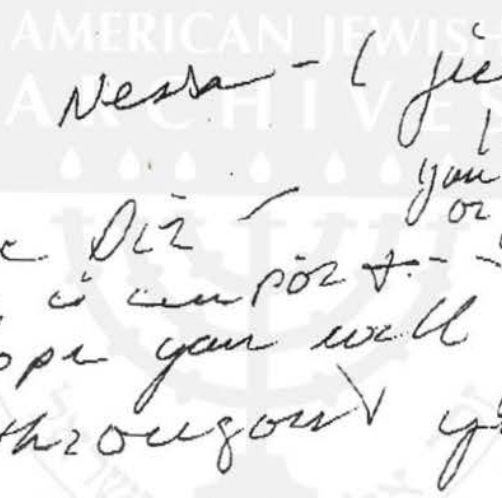 AMERICAN JEWISH
ARCHIVES
Nessa - (
you
or
Dir -
is import. -
ope you will
throughout